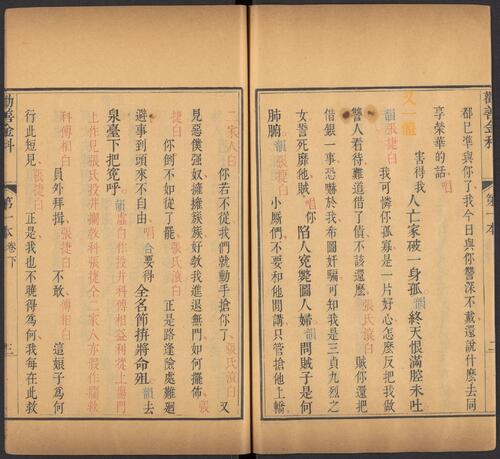 勸善金科 第一本 二
都已準與你了我今日與你讐深不戴還說什麼去同
享榮華的話 唱
又一體
害得我人亡家破一身孤韻終天恨滿腔未吐
韻張捷白 我可憐你孤寡是一片好心怎麼反把我做
讐人看待難道借了債不該還麼 張氏滾白 賊你還把
借銀一事恐嚇於我布圖奸騙可知我是三貞九烈之
女誓死靡他賊 唱 你 陷人寃斃圖人婦 韻 問賊子是何
肺腑 張捷白 小厮們不要和他閒講只管搶他上轎
二家人白 你若不從我們就動手搶你了 張氏滾白 又
見惡僕强奴擁擁簇簇好教我進退無門如何擺佈 張
捷白 你倒不如從了罷 張氏滾白 正是路逢險處難廻
避事到頭來不自由 唱 合 要得 全名節拚將命殂 韻 去
泉臺下把寃呼 韻 虛白作投井科傅相益利從上場門
上作見張氏投井攔救科張捷仝二家人亦假作攔救
科傅相白 員外拜揖 張捷白 不敢 傅相白 這娘子為何
行此短見 張捷白 正是我也不曉得為何我每在此救
勸善金科 第一本卷下 三